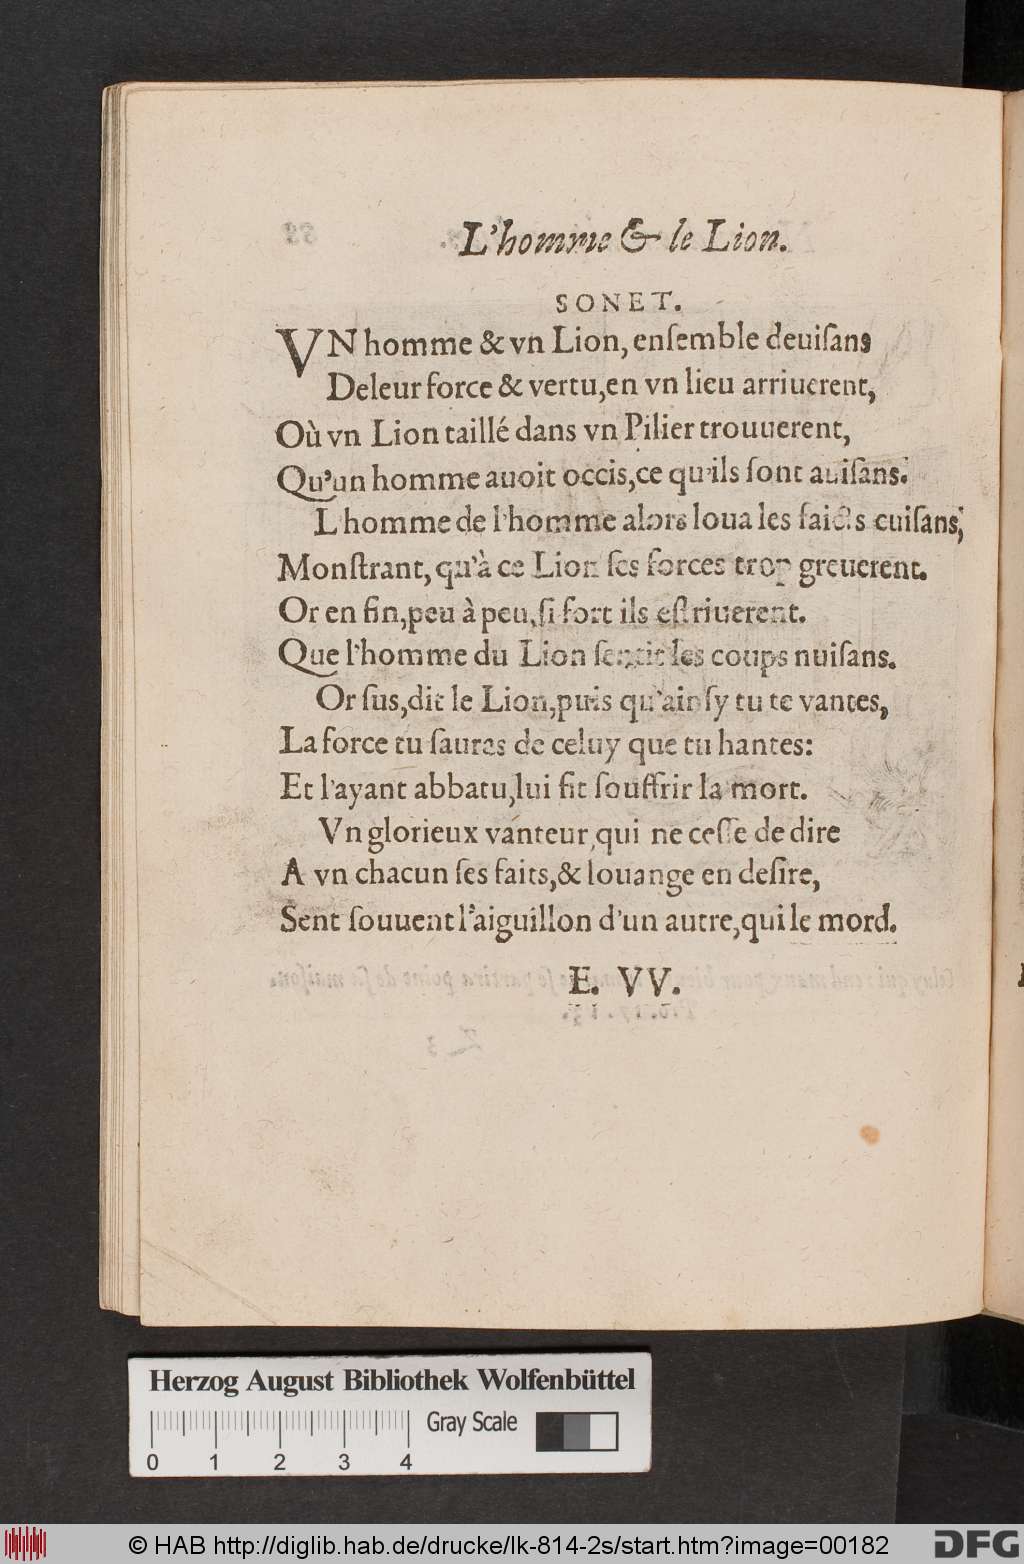 L'homme & le Lion.
SONET.
VN homme & vn Lion, enſemble deuiſans
De leur force & vertu, en vn lieu arriuerent,
Où vn Lion taillé dans vn Pilier trouuerent,
Qu'un homme auoit occis, ce qu'ils ſont auiſans.
L'homme de l'homme alors loua les faicts cuiſans,
Monſtrant, qu'à ce Lion ſes forces trop greuerent.
Or en fin, peu à peu, ſi fort ils eſtriuerent.
Que l'homme du Lion ſentit les coups nuiſans.
Or ſus, dit le Lion, puis qu'ainſy tu te vantes,
La force tu ſauras de celuy que tu hantes:
Et l'ayant abbatu, lui fit ſouffrir la mort.
Vn glorieux vanteur, qui ne ceſſe de dire
A vn chacun ſes faits, & louange en deſire,
Sent ſouuent l'aiguillon d'un autre, qui le mord.
E. VV.
Herzog August Bibliothek Wolfenbüttel
Gray Scale
0 1 2 3 4
© HAB http://diglib.hab.de/drucke/lk-814-2s/start.htm?image=00182
DFG